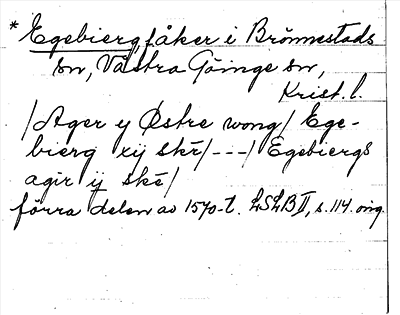 * Egebierg, åker i Brönnestads
sn, Västra Göinge sn,
Krist. l.
/Ager y Østre wong/ Ege-
bierg xij skē/---/Egebiergs
agir ij skē/
förra delen av 1570-t. LSLB II, s. 114. orig.